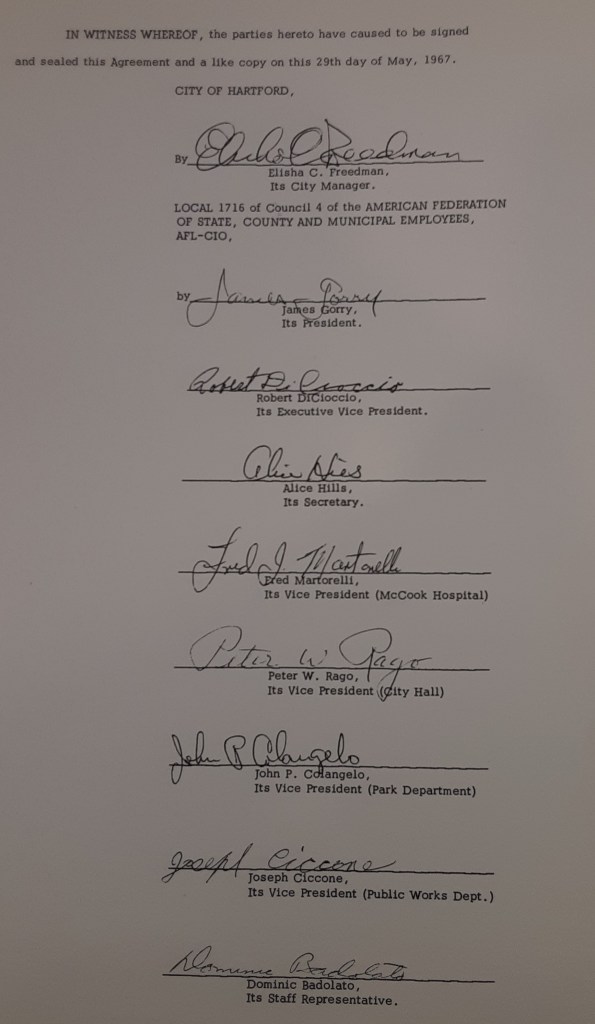 IN WITNESS WHEREOF, the parties hereto have caused to be signed
and sealed this Agreement and a like copy on this 29th day of May, 1967.
CITY OF HARTFORD,
By Elisha C. Freedman
Elisha C. Freedman,
Its City Manager.
LOCAL 1716 of Council 4 of the AMERICAN FEDERATION
OF STATE, COUNTY AND MUNICIPAL EMPLOYEES,
AFL-CIO,
by James Gorry
James Gorry,
Its President.
Robert DiCioccio
Robert DiCioccio,
Its Executive Vice President.
Alice Hills
Alice Hills,
Its Secretary.
Fred J. Martorelli
Fred Martorelli,
Its Vice President (McCook Hospital)
Peter W. Rago
Peter W. Rago,
Its Vice President (City Hall)
John P. Colangelo
John P. Colangelo,
Its Vice President (Park Department)
Joseph Ciccone
Joseph Ciccone,
Its Vice President (Public Works Dept.)
Dominic Badolato
Dominic Badolato,
Its Staff Representative.